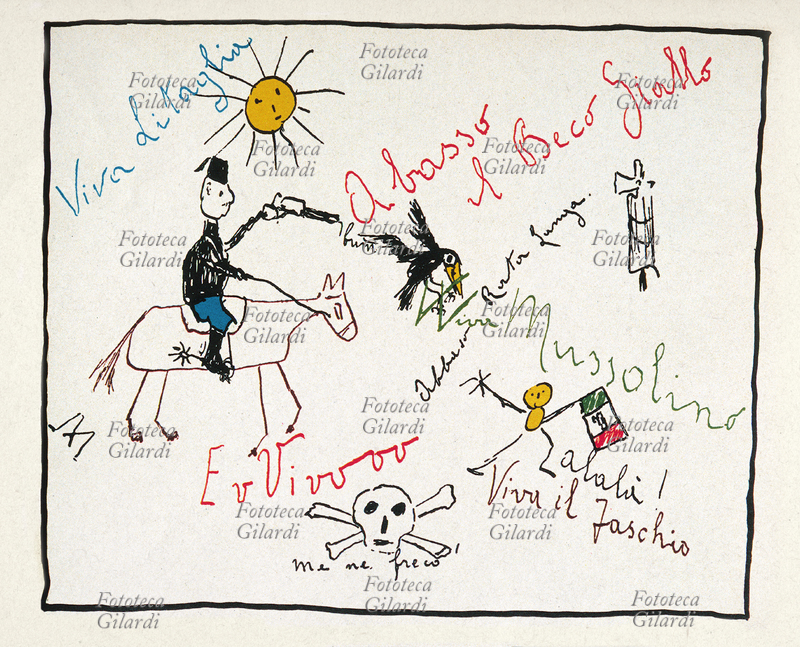 Viva Litaglia
Abasso
il Beco Giallo
bum
Abbaso Rata Lunga.
Viva Mussolino
Ev Vivooo
alalà!
Viva il Faschio
me ne freco!
Fototeca Gilardi
Fototeca Gilardi
Fototeca Gilardi
Fototeca Gilardi
Fototeca Gilardi
Fototeca Gilardi
Fototeca Gilardi
Fototeca Gilardi
Fototeca Gilardi
Fototeca Gilardi
Fototeca Gilardi
Fototeca Gilardi
Fototeca Gilardi
Fototeca Gilardi
Fototeca Gilardi
Fototeca Gilardi
Fototeca Gilardi
Fototeca Gilardi